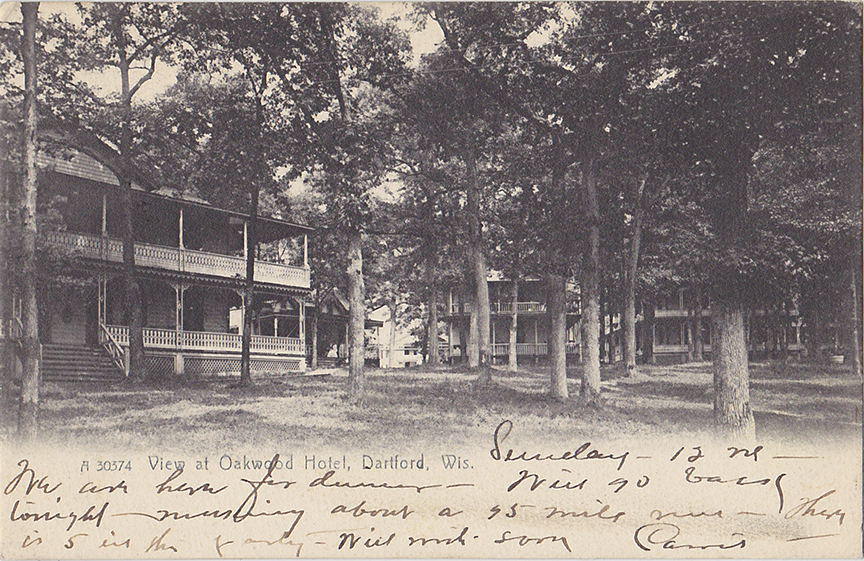 A 30374 View at Oakwood Hotel, Dartford, Wis.
Sunday - 12 M -
We are here for dinner - Will go back
tonight - making about a 95 mile run - There
is 5 in the party - Will write soon